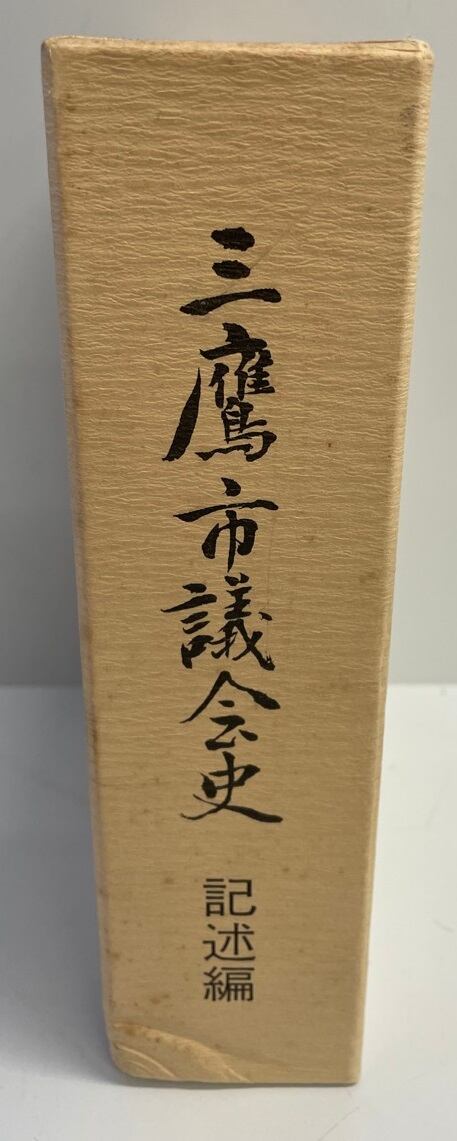 三鷹市議会史
記述編